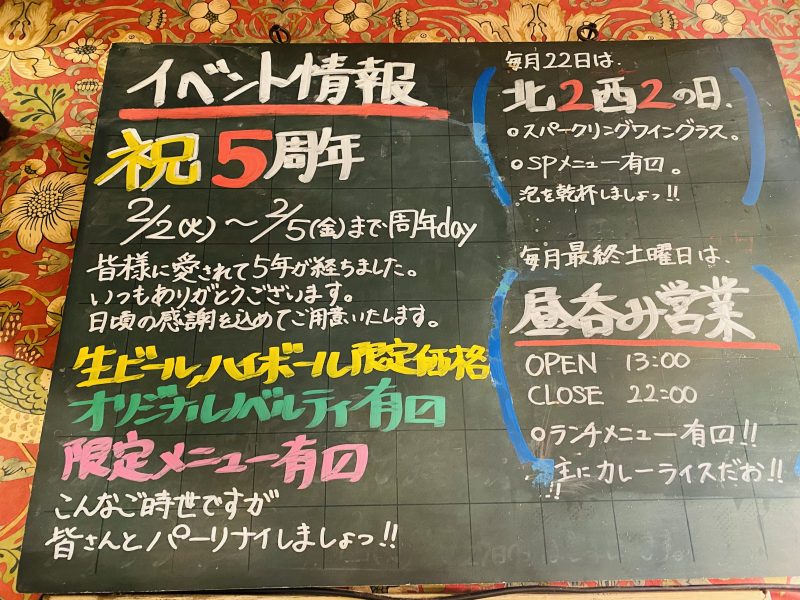 イベント情報
祝5周年
2/2(火)〜2/5(金)まで周年day
皆様に愛されて5年が経ちました。
いつもありがとうございます。
日頃の感謝を込めてご用意いたします。
生ビール,ハイボール限定価格
オリジナルノベルティ有り
限定メニュー有り
こんなご時世ですが
皆さんとパーリナイしましょっ!!
毎月22日は、
北2西2の日、
○スパークリングワイングラス。
○SPメニュー有り。
泡を乾杯しましょっ!!
毎月最終土曜日は、
昼呑み営業
OPEN 13:00
CLOSE 22:00
○ランチメニュー有り!!
主にカレーライスだお!!
!!